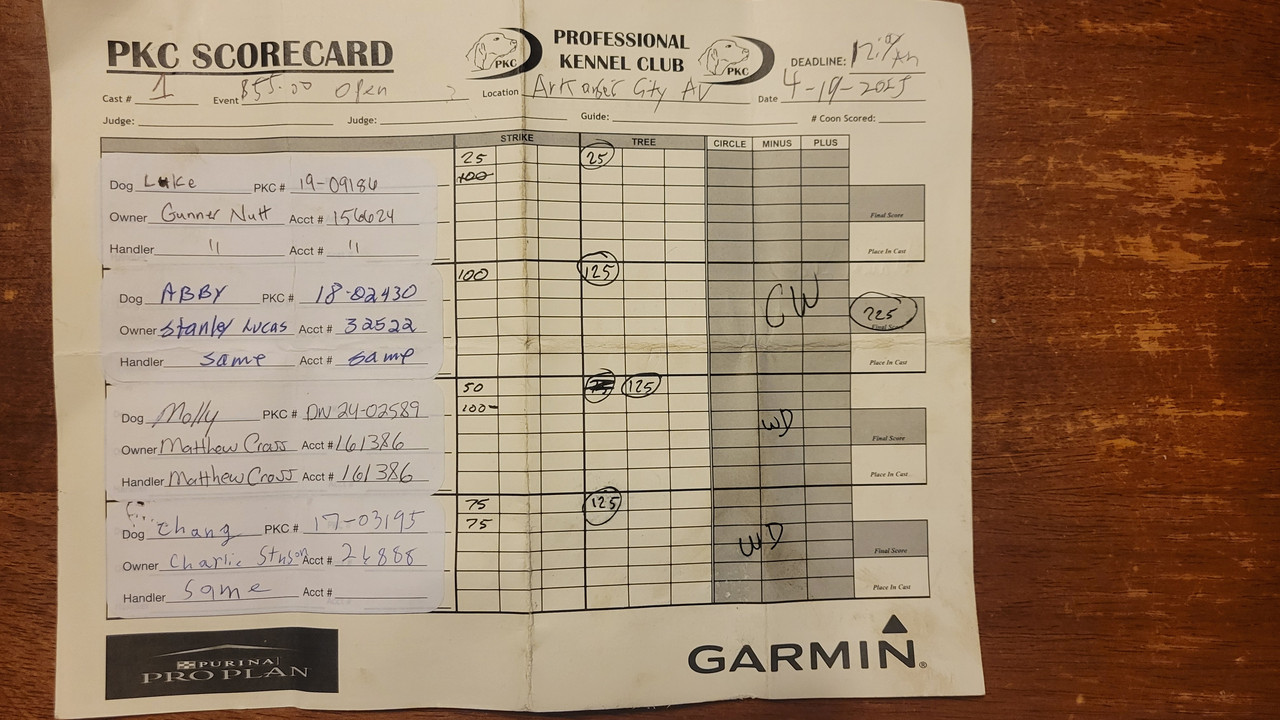 PKC SCORECARD
PKC
PROFESSIONAL
KENNEL CLUB
PKC
DEADLINE:
Cast # 1 Event $55.00 Open Location City Date 4-19-2025
Judge: Judge: Guide: # Coon Scored:
STRIKE TREE CIRCLE MINUS PLUS
25 25
100
Dog Luke PKC # 19-09186
Owner Gunner Nutt Acct # 156624 Final Score
Handler " Acct # " Place In Cast
100 125
Dog ABBY PKC # 18-02430 CW 225
Owner Stanley Lucas Acct # 32522 Final Score
Handler same Acct # same Place In Cast
50 125
100
Dog Molly PKC # DN 24-02589 WD
Owner Matthew Cross Acct # 161386 Final Score
Handler Matthew Cross Acct # 161386 Place In Cast
75 125
75
Dog PKC # 17-03195 WD
Owner Charlie Acct # Final Score
Handler Same Acct # Place In Cast
PURINA
PRO PLAN
GARMIN®